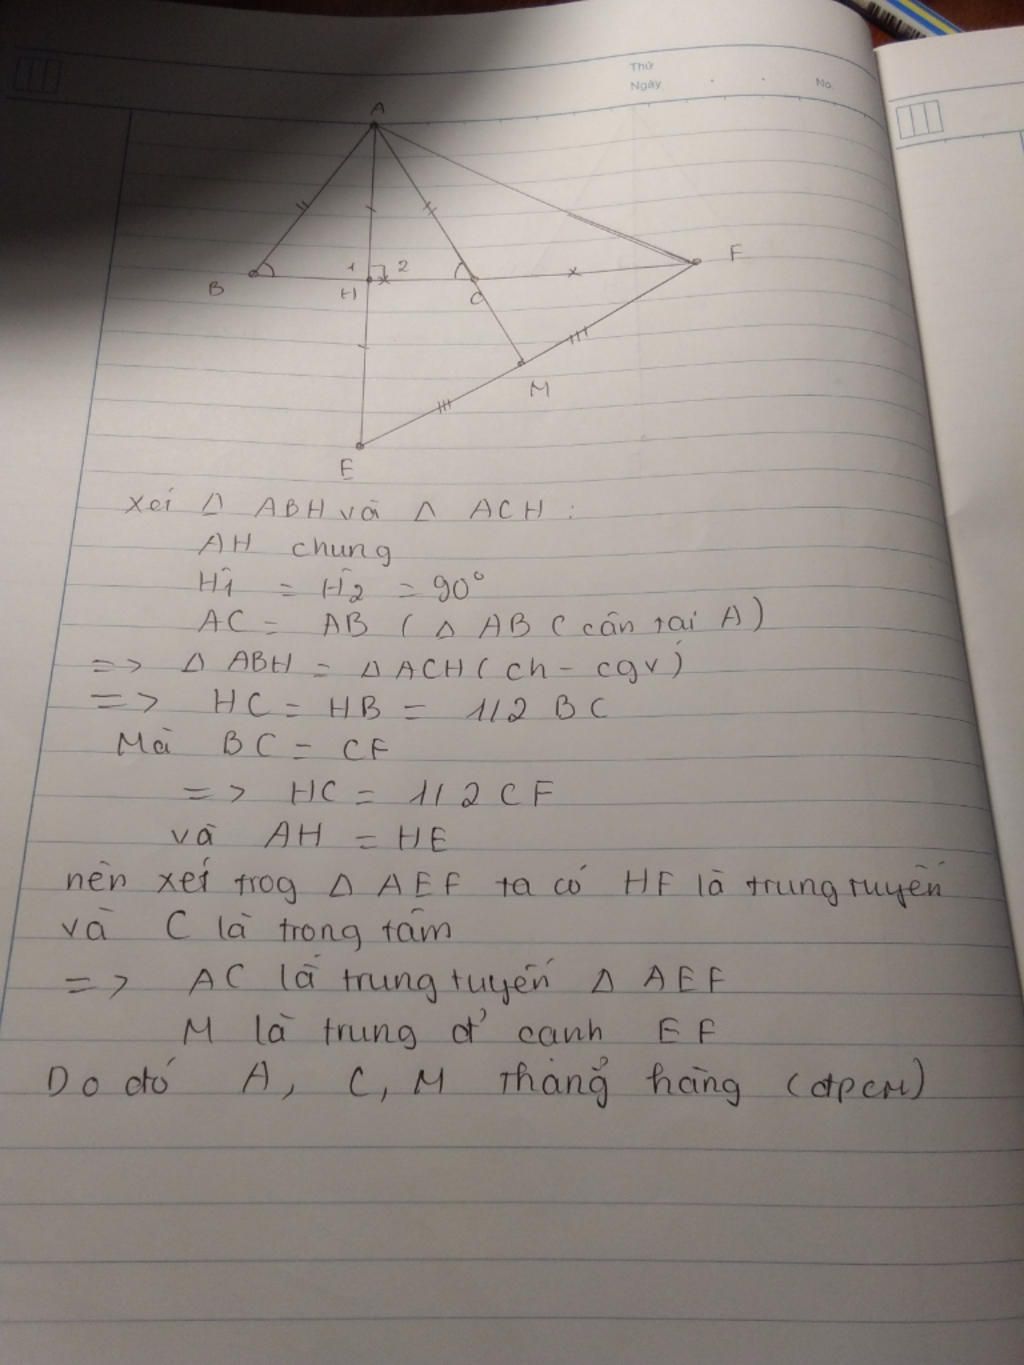 Thứ
Ngày . . No.
A
B
1
2
H
C
F
M
E
Xét Δ ABH và Δ ACH :
AH chung
H1 = H2 = 90°
AC = AB ( Δ ABC cân tại A )
=> Δ ABH = Δ ACH ( ch - cgv )
=> HC = HB = 1/2 BC
Mà BC = CF
=> HC = 1/2 CF
và AH = HE
nên xét trog Δ AEF ta có HF là trung tuyến
và C là trọng tâm
=> AC là trung tuyến Δ AEF
M là trung đ' cạnh EF
Do đó A, C, M thẳng hàng (đpcm)